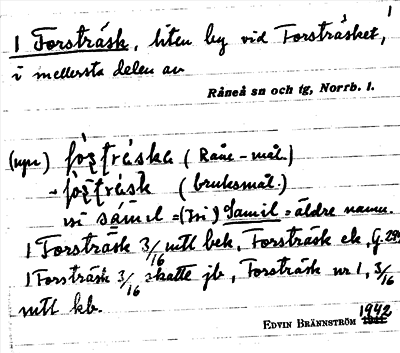 1
1 Forsträsk, liten by vid Forsträsket,
i mellersta delen av
Råneå sn och tg, Norrb. l.
(upr.) fòșțràska (Råne-mål.)
- fòșțràsk (bruksmål.)
isi sámel = (Isi) Samil = äldre namn.
1 Forsträsk 3/16 mtl bek, Forsträsk ek, G.
1 Forsträsk 3/16 skatte jb, Forsträsk nr 1, 3/16
mtl kb.
EDVIN BRÄNNSTRÖM 1942